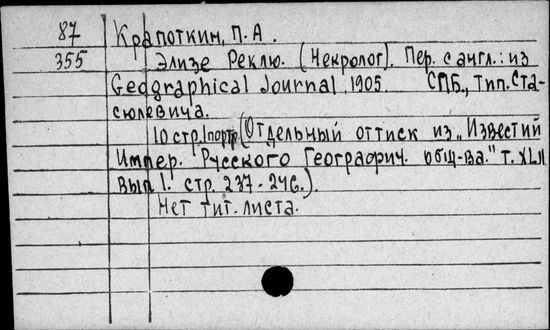 87 Крапоткин, П. А.
355 Элизе Реклю. (Некролог). Пер. с англ.: из
Geographical Journal, 1905 СПБ., Тип. Ста-
сюлевича.
10 стр. 1 портр. (Отдельный оттиск из „Известий
Импер. Русского Географич. общ-ва." т. XLII
вып 1. стр. 237-246.).
Нет тит. листа.